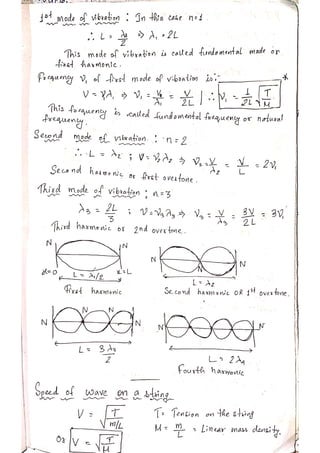 1st mode of vibration : In this case n=1
∴ L = λ₁/2 ⇒ λ₁ = 2L
This mode of vibration is called fundamental mode or
first harmonic.
Frequency ν₁ of first mode of vibration is:-
V = νλ₁ ⇒ ν₁ = V/λ₁ = V/2L ∴ ν₁ = 1/2L √T/M
This frequency is called fundamental frequency or natural
frequency.
Second mode of vibration : n=2
∴ L = λ₂ ; V = ν₂λ₂ ⇒ ν₂ = V/λ₂ = V/L = 2ν₁
Second harmonic or first overtone.
Third mode of vibration ; n=3
λ₃ = 2L/3 ; V = ν₃λ₃ ⇒ ν₃ = V/λ₃ = 3V/2L = 3ν₁
Third harmonic or 2nd overtone.
N N N N N
x=0 L = λ₁/2 x=L
L = λ₂
First harmonic Second harmonic OR 1st overtone.
N N N N N N
L = 3λ₃/2 L = 2λ₄
Fourth harmonic
Speed of wave on a string
V = √T/m/L T = Tension on the string
Or V = √T/M M = m/L = Linear mass density.